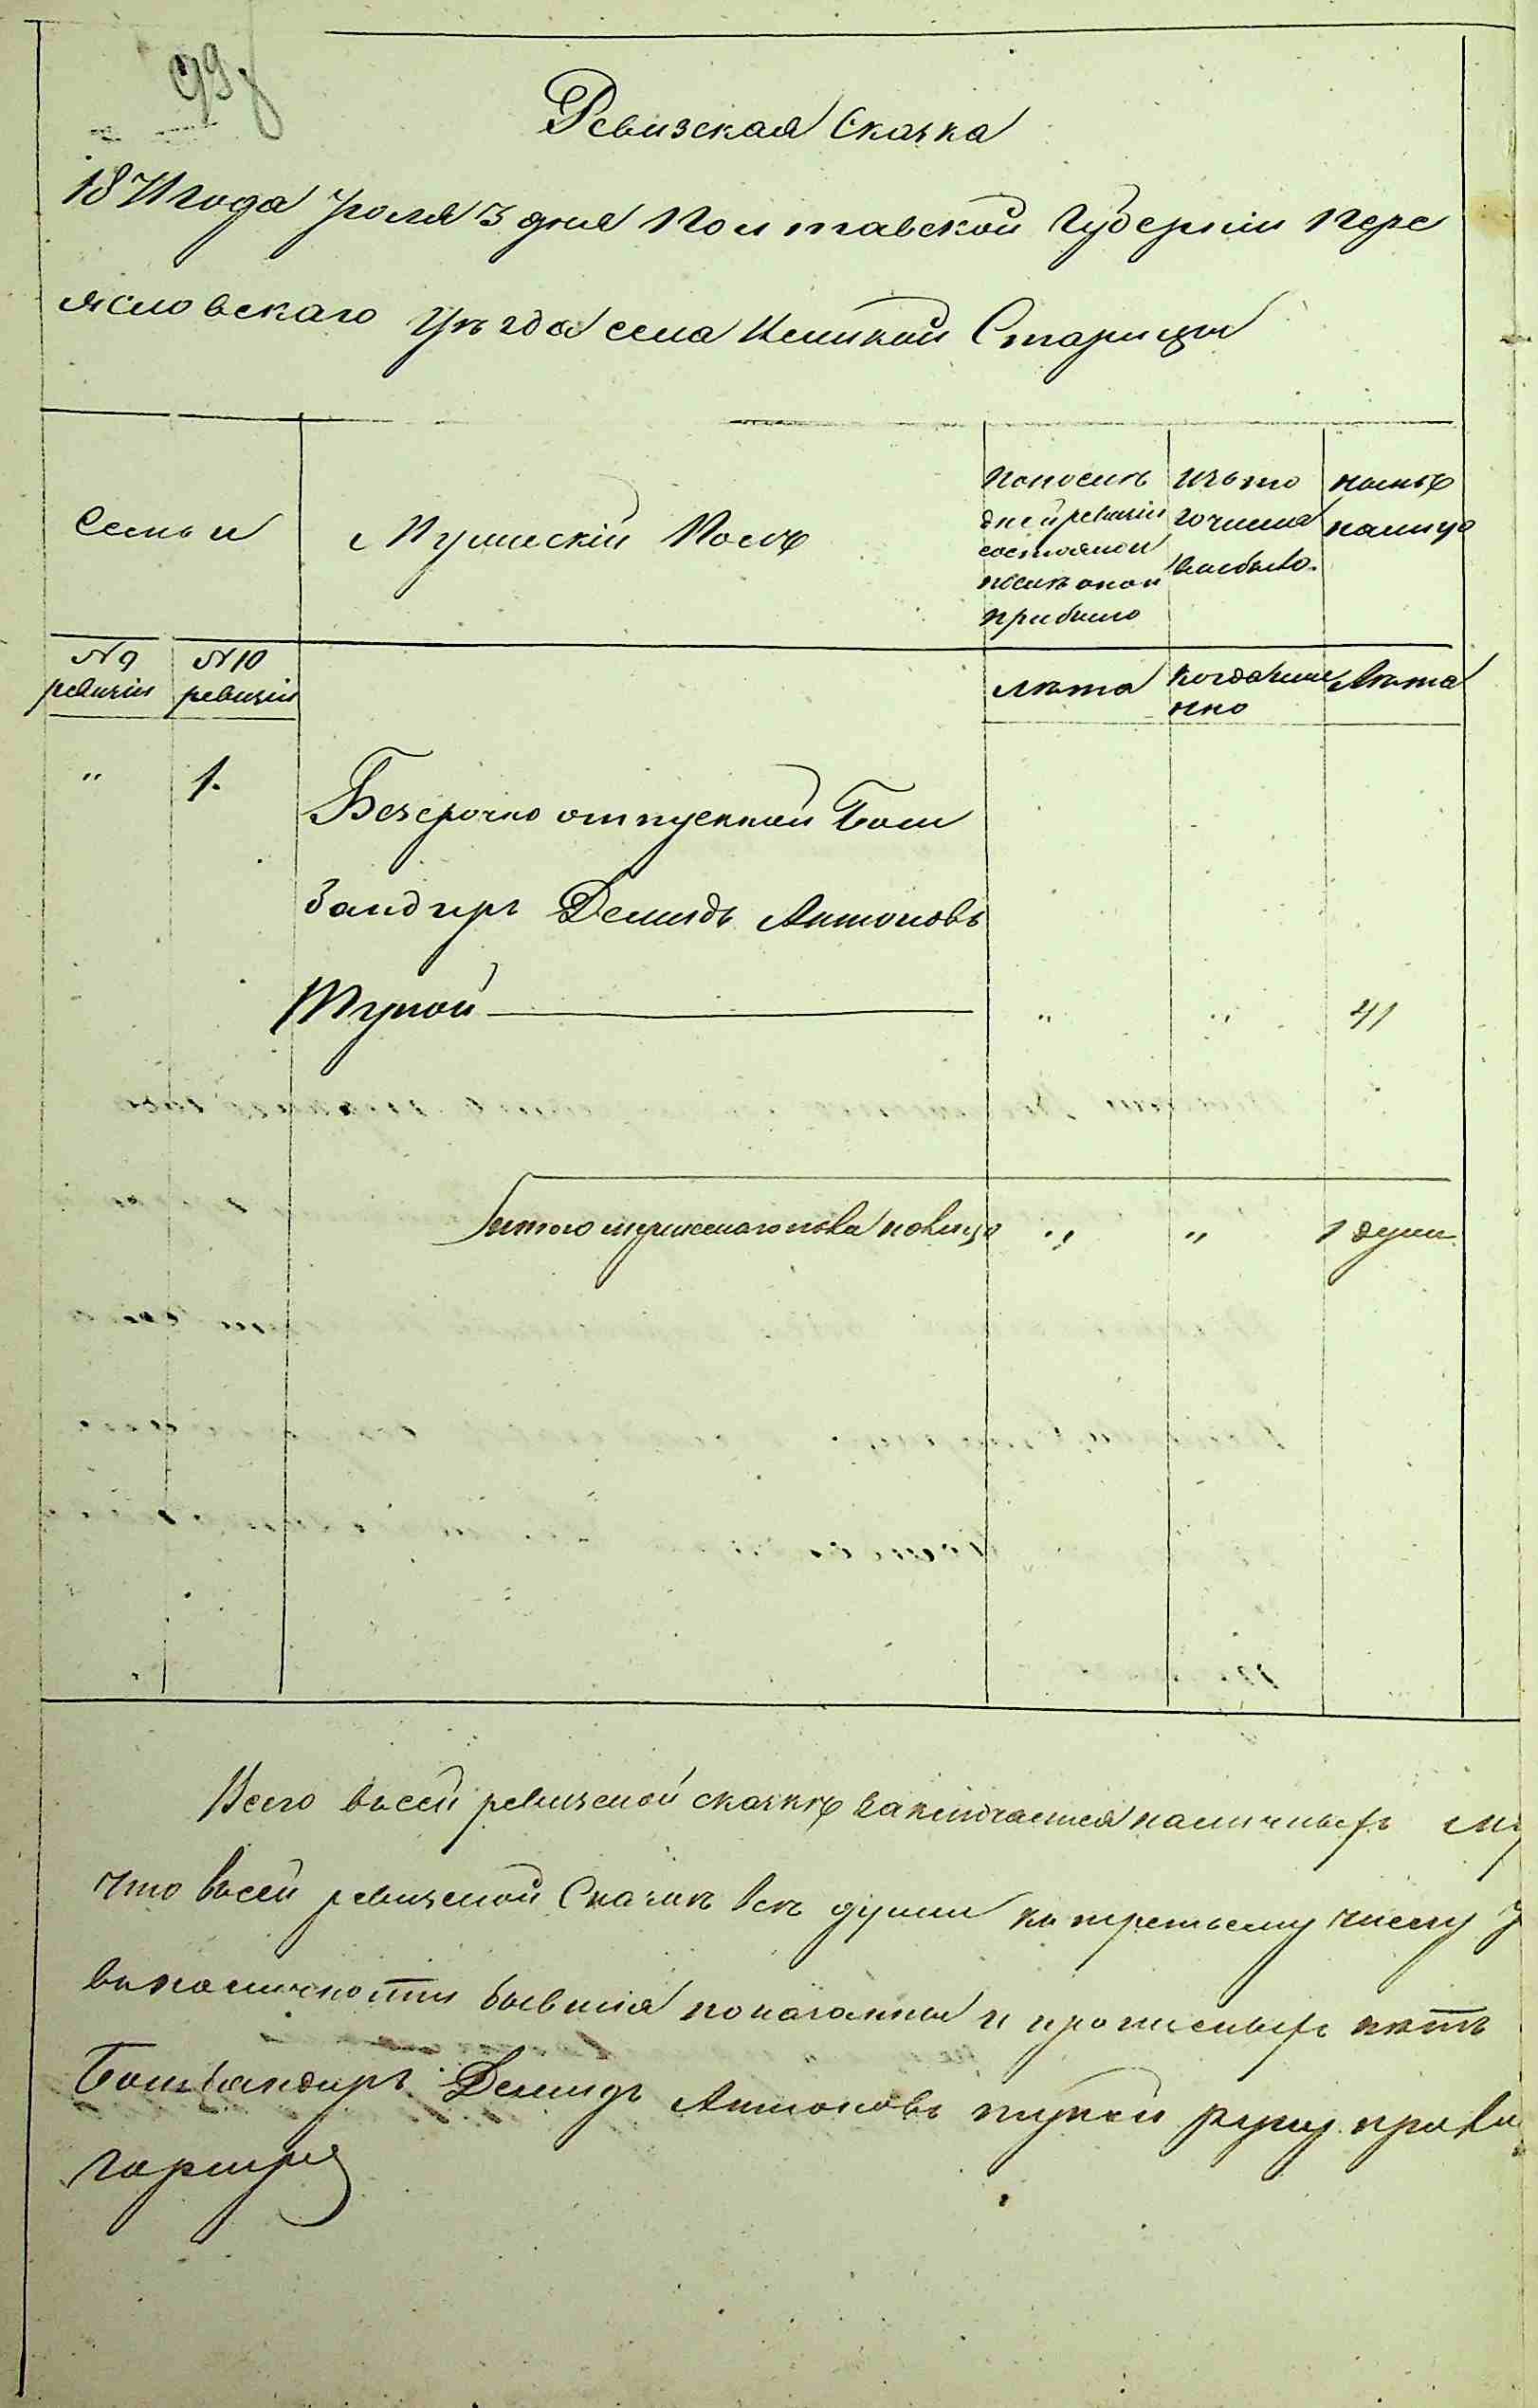 99
Ревизская Сказка
18 года Июля 3 дня Полтавской Губернии Пере
ясловскаго Уѣзда села Великой Старицы
Семьи
Мужескій Полъ
Попослѣ
дней ревизіи
состояло и
послѣ оной
прибыло
Изъ то
го числа
выбыло.
нынѣ
налицо
№ 9
ревизіи
№ 10
ревизіи
лѣта
когда име
нно
Лѣта
" 1.
Безсрочно отпускной Бом
бандиръ Демидъ Антоновъ
Тупой " " 41
Итого мужескаго пола налицо " " 1 душа
Всего въ сей ревизской сказкѣ заключается наличныхъ
что въ сей ревизской Сказкѣ всѣ души къ третьему числу
въ наличности бывшія показанны и прописныхъ нѣтъ
Бомбандиръ Демидъ Антоновъ Тупой руку